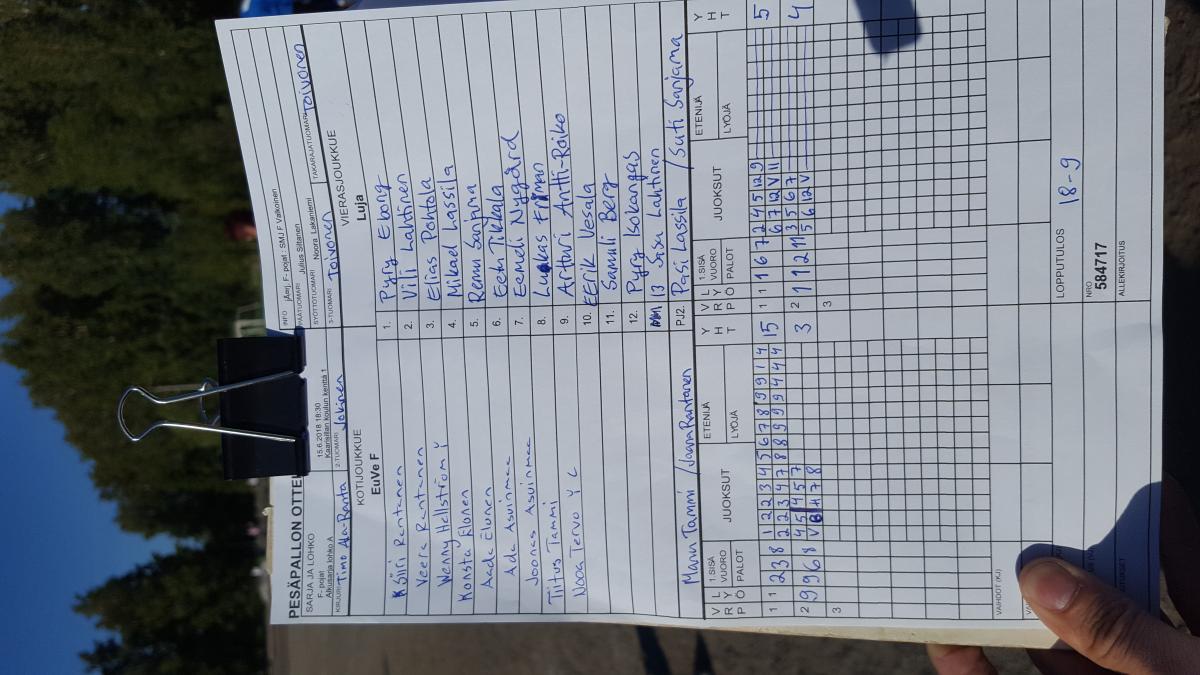 PESÄPALLON OTTE
SARJA JA LOHKO
F- pojat
Alkusarja lohko A
15.6.2018 18:30
Kaarisillan koulun kenttä 1
INFO jAerj, F- pojat : SMJ F Valkoinen
PÄÄTUOMARI Julius Siltanen
SYÖTTÖTUOMARI Noora Lakaniemi
KIRJURI Timo Ala-Ranta 2-TUOMARI Jokinen 3-TUOMARI Toivonen TAKARAJATUOMARI Toivonen
KOTIJOUKKUE VIERASJOUKKUE
EuVe F Luja
Kiiri Rantanen 1. Pyry Ebong
Veera Rantanen 2. Vili Lahtinen
Wenny Hellström Y 3. Elias Pohtola
Konsta Elonen 4. Mikael Lassila
Aada Elonen 5. Remu Sarjama
Ada Asuinmaa 6. Eeti Tikkala
Joonas Asuinmaa 7. Eemeli Nygård
Tiitus Tammi 8. Luukas
Nooa Tervo Y C 9. Artturi Antti-Roiko
10. EErik Vesala
11. Samuli Berg
12. Pyry Isokangas
13 Sisu Lahtinen
Manu Tammi / Jaana Rantanen PJ2. Pasi Lassila / Suti Sarjama
V R P L Y Ö 1.SISÄ VUORO PALOT JUOKSUT ETENIJÄ LYÖJÄ Y H T V R P L Y Ö 1.SISÄ VUORO PALOT JUOKSUT ETENIJÄ LYÖJÄ Y H T
1 1 2 3 8 1 2 2 3 4 5 6 7 8 9 9 1 4 15 1 1 6 7 2 4 5 12 9 5
2 2 3 4 7 8 8 9 9 9 4 4 4 6 7 12 V 11
2 9 9 6 8 4 5 4 5 7 3 2 11 12 11 3 5 6 7 4
V 8 4 7 8 5 6 12 V
3 3
VAIHDOT (KJ) LOPPUTULOS 18-9
NRO
584717
ALLEKIRJOITUS